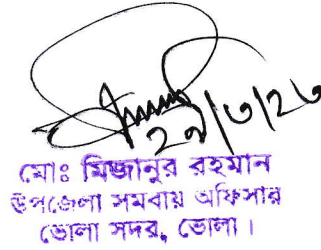 ২৯/৩/২৬
মোঃ মিজানুর রহমান
উপজেলা সমবায় অফিসার
ভোলা সদর, ভোলা।